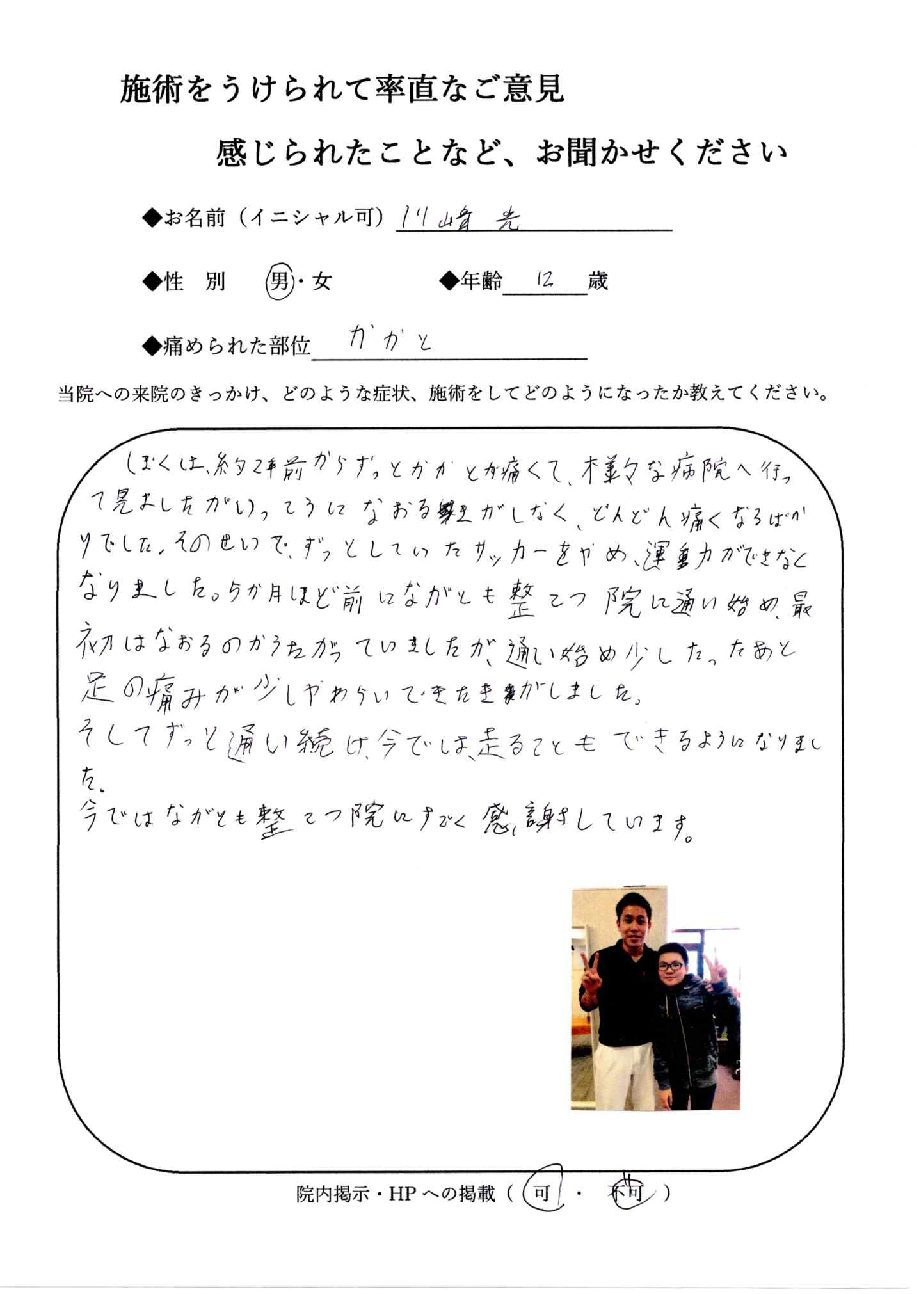 施術をうけられて率直なご意見
感じられたことなど、お聞かせください
◆お名前（イニシャル可）川崎 光
◆性 別 男・女 ◆年齢 12 歳
◆痛められた部位 かかと
当院への来院のきっかけ、どのような症状、施術をしてどのようになったか教えてください。
ぼくは、約2年前からずっとかかとが痛くて、様々な病院へ行っ
て見ましたがいってうになおる気がしなく、どんどん痛くなるばか
りでした。そのせいで、ずっとしていたサッカーをやめ、運動ができなく
なりました。5か月ほど前にながとも整こつ院に通い始め、最
初はなおるのかうたがっていましたが、通い始め少したったあと
足の痛みが少しやわらいできたきがしました。
そしてずっと通い続け、今では、走ることもできるようになりまし
た。
今ではながとも整こつ院にすごく感謝しています。
院内掲示・HPへの掲載（ 可 ・ 不可 ）